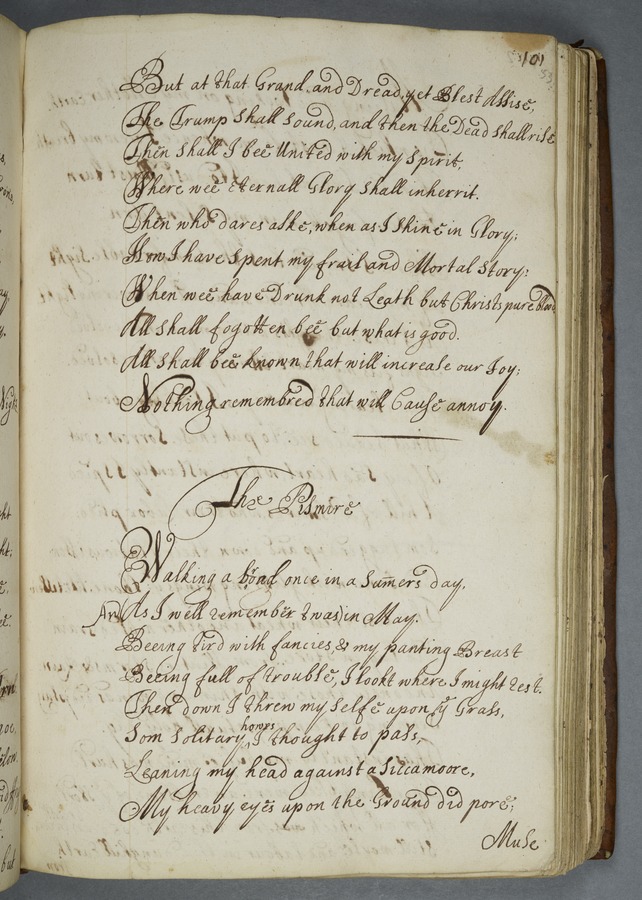 101
But at that Grand, and Dread, yet Blest Assise,
The Trump shall sound, and then the Dead shall rise
Then shall I bee United with my Spirit,
Where wee eternall Glory shall inherrit.
Then who dares aske, when as I shine in Glory;
How I have spent my frail and Mortal story:
When wee have Drunk not Leath but Christs pure blood
All shall fogotten bee but what is good.
All shall bee known that will increase our Joy;
Nothing remembred that will Cause annoy.
The Pismire
Walking a bōnd once in a Sumers day,
As I well remember twas in May.
Beeing tird with fancies, & my panting Breast
Beeing full of trouble, I lookt where I might rest.
Then down I threw my selfe upon ye Grass,
Som solitary howrs I thought to pass,
Leaning my head against a Siccamoore,
My heavy eyes upon the Ground did pore;
Muse